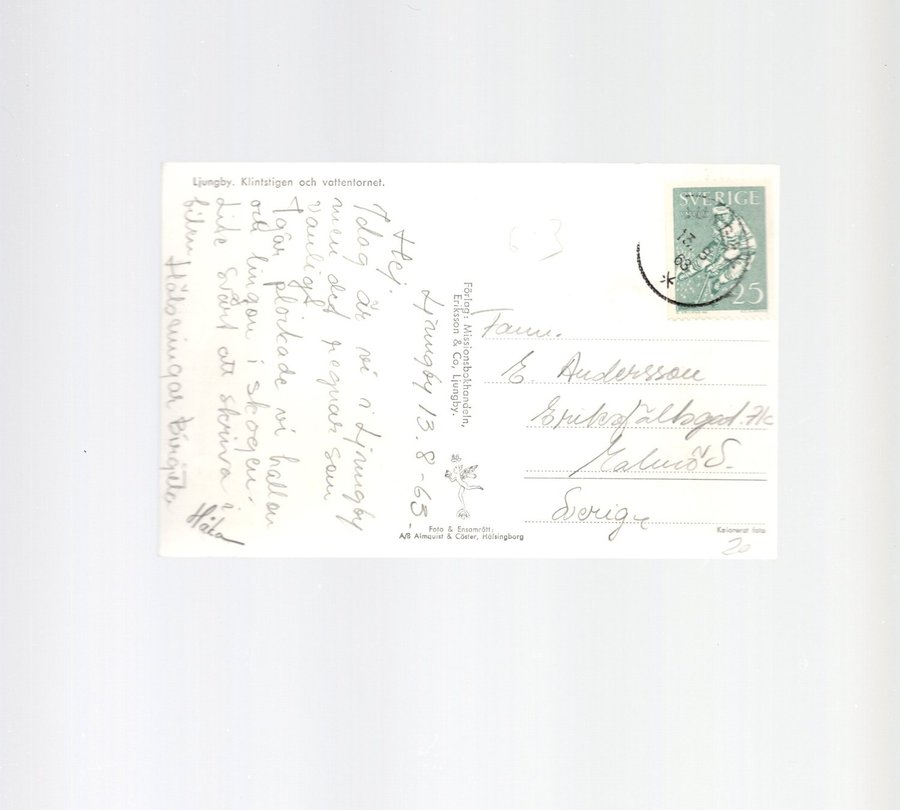 Ljungby. Klintstigen och vattentornet.
Ljungby 13.8-63.
Hej.
Idag är vi i Ljungby
men det regnar som
vanligt.
Igår plockade vi hallon
och lingon i skogen.
Lite svårt att skriva i
bilen Hälsningar Birgitta
Förlag: Missionsbokhandeln,
Eriksson & Co, Ljungby.
Foto & Ensamrätt:
A/B Almquist & Cöster, Hälsingborg
SVERIGE
25
13. 8
63
Fam.
E. Andersson
Malmö S.
Sverige
Kolorerat foto
20
63